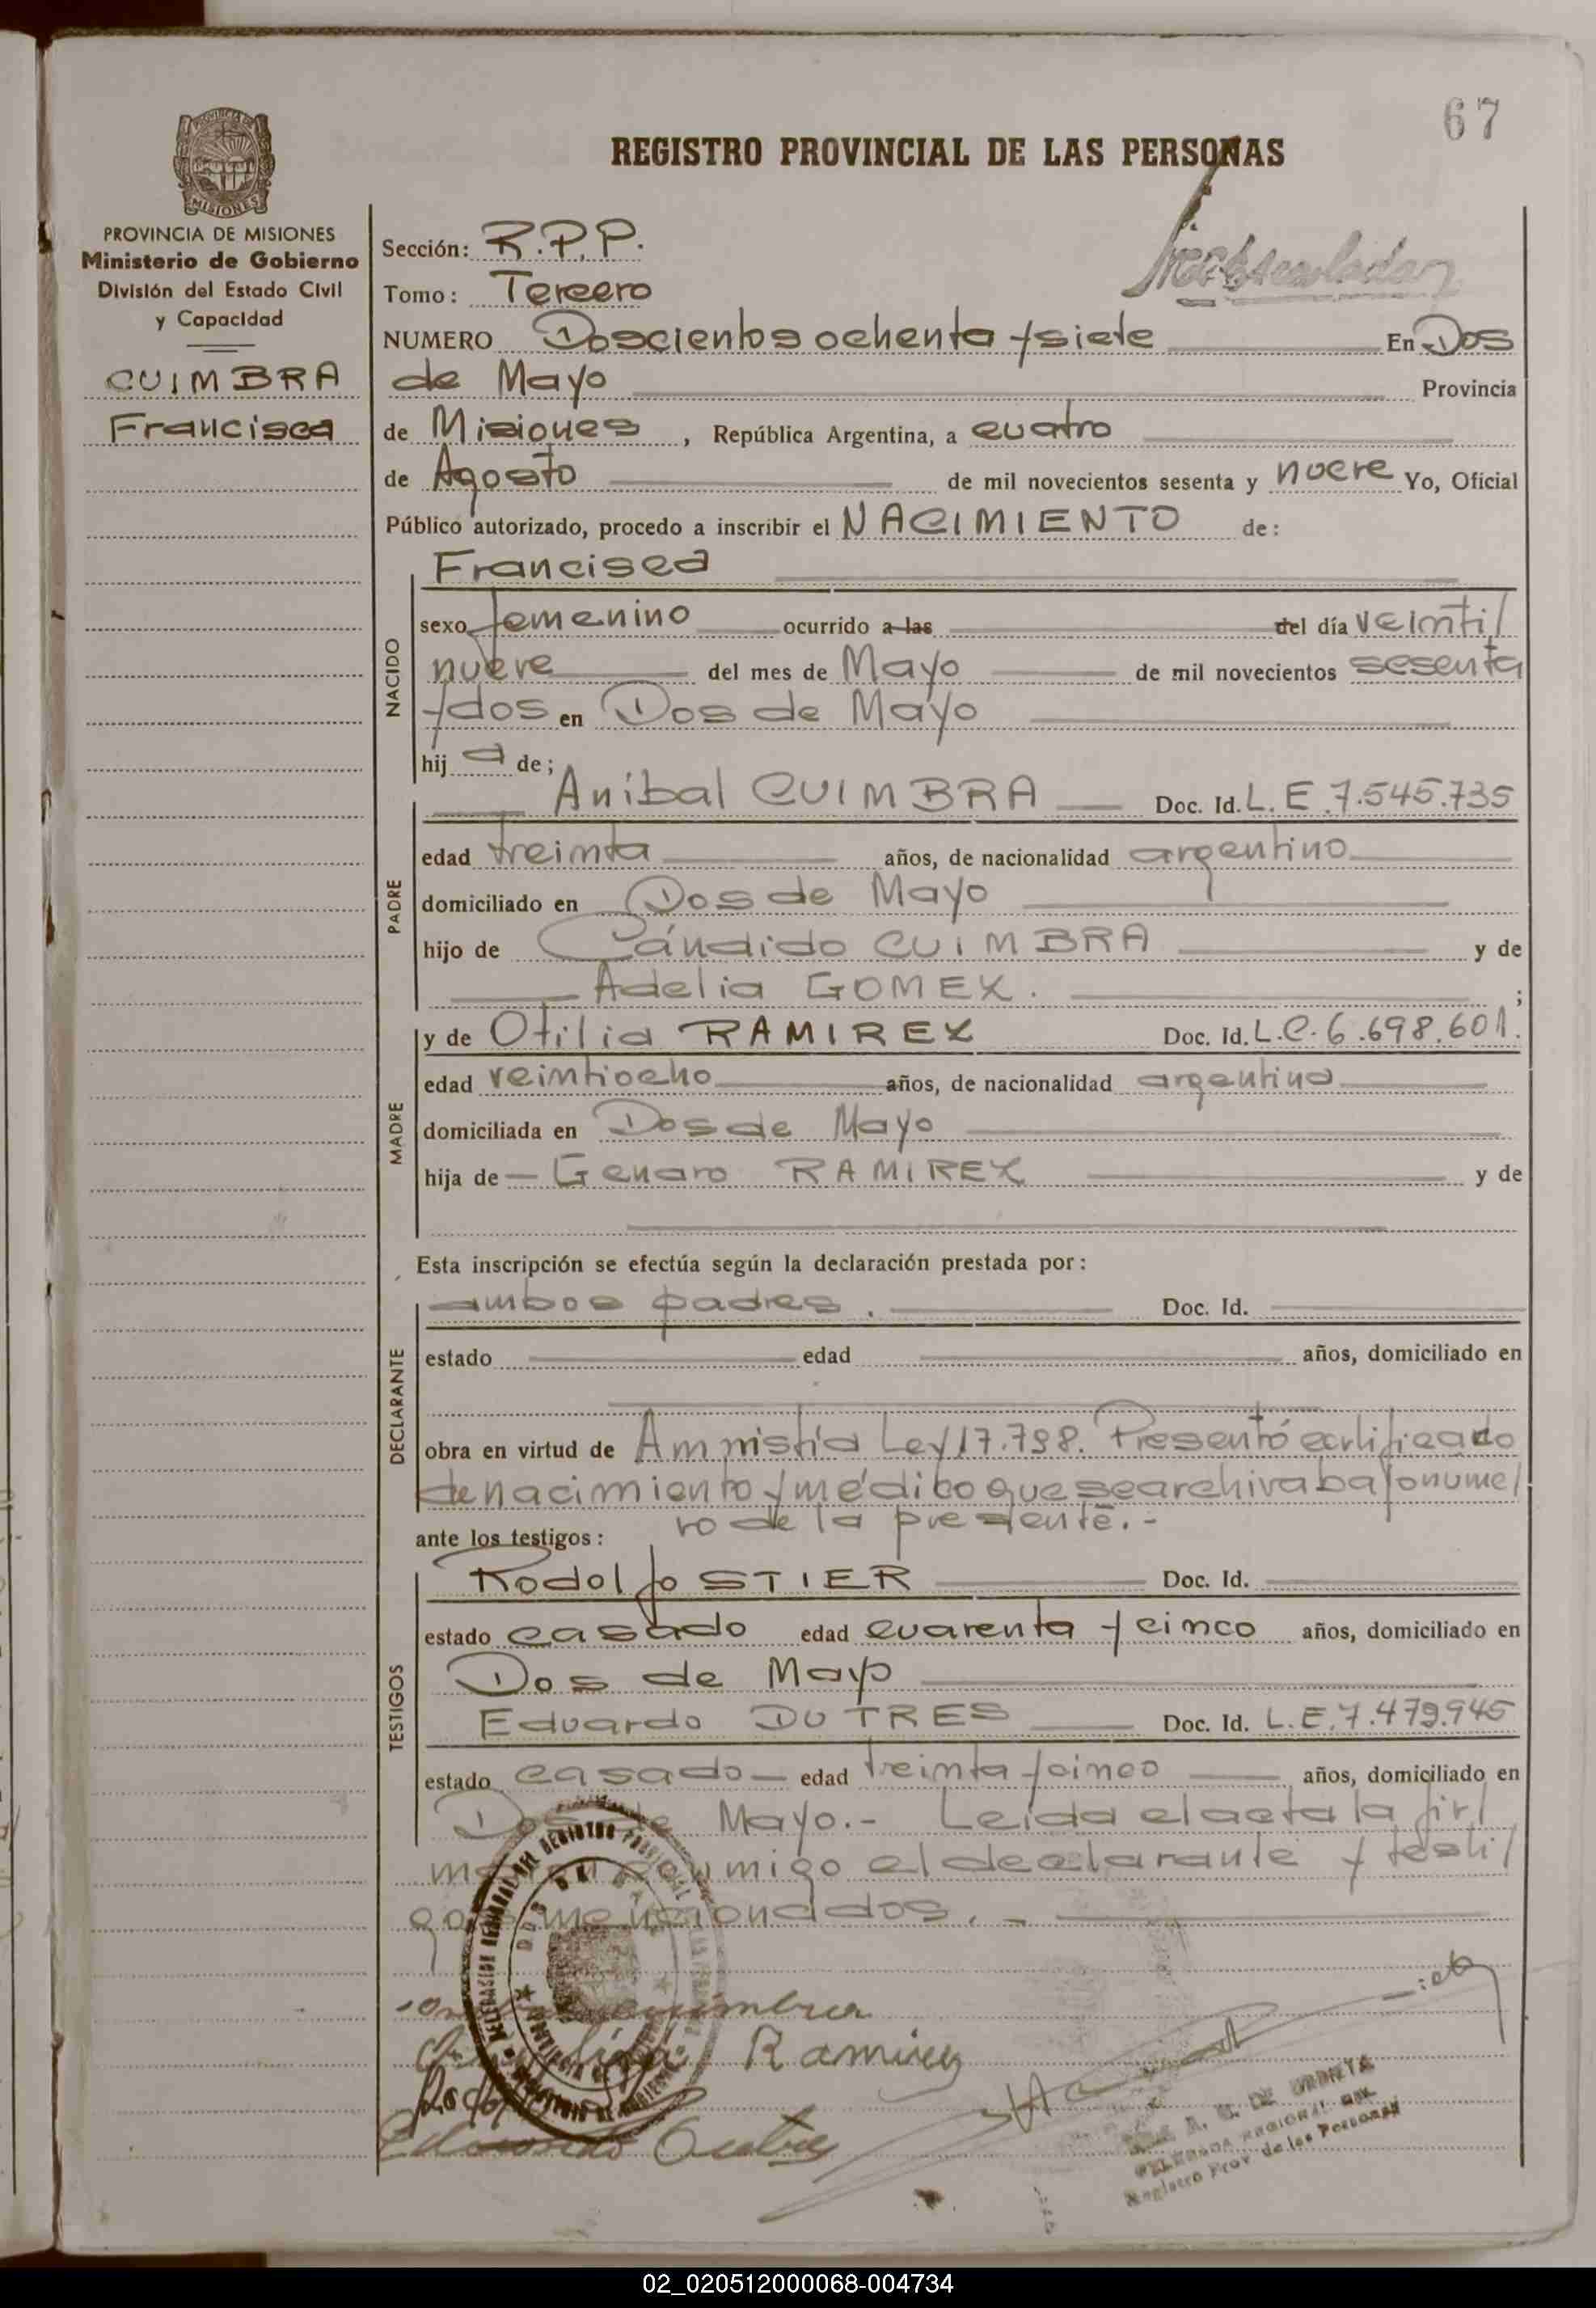 67
REGISTRO PROVINCIAL DE LAS PERSONAS
PROVINCIA DE
MISIONES
PROVINCIA DE MISIONES
Ministerio de Gobierno
División del Estado Civil
y Capacidad
CUIMBRA
Francisca
Sección: R.P.P.
Tomo: Tercero
NUMERO Doscientos ochenta y siete En Dos
de Mayo Provincia
de Misiones, República Argentina, a cuatro
de Agosto de mil novecientos sesenta y nueve Yo, Oficial
Público autorizado, procedo a inscribir el NACIMIENTO de:
NACIDO
Francisca
sexo femenino ocurrido a las del día veinti/
nueve del mes de Mayo de mil novecientos sesenta
y dos en Dos de Mayo
hij a de;
PADRE
Anibal CUIMBRA Doc. Id. L.E 7.545.735
edad treinta años, de nacionalidad argentino
domiciliado en Dos de Mayo
hijo de Cándido CUIMBRA y de
Adelia GOMEZ. ;
MADRE
y de Otilia RAMIREZ Doc. Id. L.C. 6.698.601.
edad veintiocho años, de nacionalidad argentina
domiciliada en Dos de Mayo
hija de - Genaro RAMIREZ y de
Esta inscripción se efectúa según la declaración prestada por:
DECLARANTE
ambos padres. Doc. Id.
estado edad años, domiciliado en
obra en virtud de Amnistía Ley 17.798. Presentó certificado
de nacimiento y médico que se archiva bajo núme/
ro de la presente.-
ante los testigos:
TESTIGOS
Rodolfo STIER Doc. Id.
estado casado edad cuarenta y cinco años, domiciliado en
Dos de Mayo
Eduardo DUTRES Doc. Id. L.E. 7.479.945
estado casado - edad treinta y cinco años, domiciliado en
Dos de Mayo.- Leida el acta la fir/
man conmigo el declarante y testi/
gos mencionados. -
cuimbra
Ramirez
Eduardo Dutres
DELEGADA REGIONAL DEL
Registro Prov. de las Personas
02_020512000068-004734